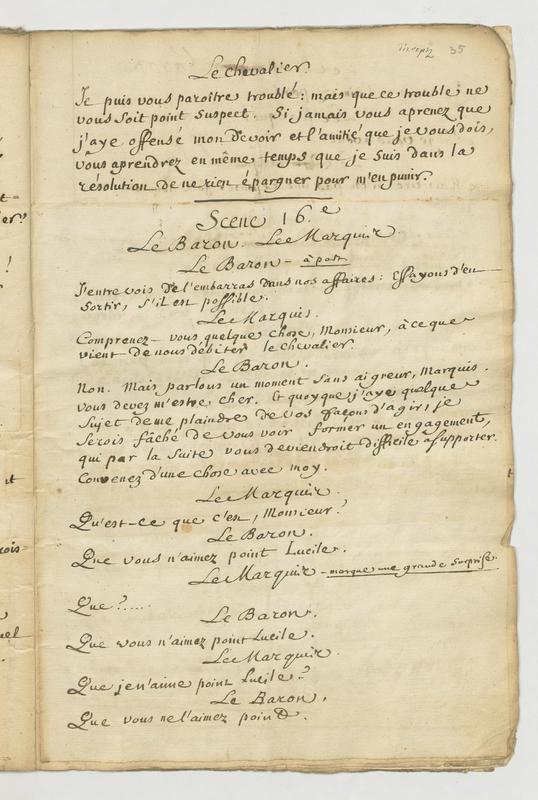 35
Le chevalier.
Je puis vous paroître troublé : mais que ce trouble ne
vous soit point suspect. Si jamais vous aprenez que
j'aye offensé mon devoir et l'amitié que je vous dois,
vous aprendrez en même temps que je suis dans la
résolution de ne rien épargner pour m'en punir.
Scene 16.e
Le Baron. Le Marquis.
Le Baron - à part
J'entrevois de l'embarras dans nos affaires : Essayons d'en
sortir, s'il est possible.
Le Marquis.
Comprenez-vous quelque chose, Monsieur, à ce que
vient de nous débiter le chevalier.
Le Baron.
Non. Mais parlons un moment sans aigreur, Marquis.
Vous devez m'estre cher. Et quoyque j'aye quelque
sujet de me plaindre de vos façons d'agir, je
serois fâché de vous voir former un engagement,
qui par la suite vous deviendroit difficile à supporter.
Convenez d'une chose avec moy.
Le Marquis.
Qu'est-ce que c'est, Monsieur ?
Le Baron.
Que vous n'aimez point Lucile.
Le Marquis - marque une grande surprise.
Que ?.....
Le Baron.
Que vous n'aimez point Lucile.
Le Marquis.
Que je n'aime point Lucile ?
Le Baron.
Que vous ne l'aimez point.